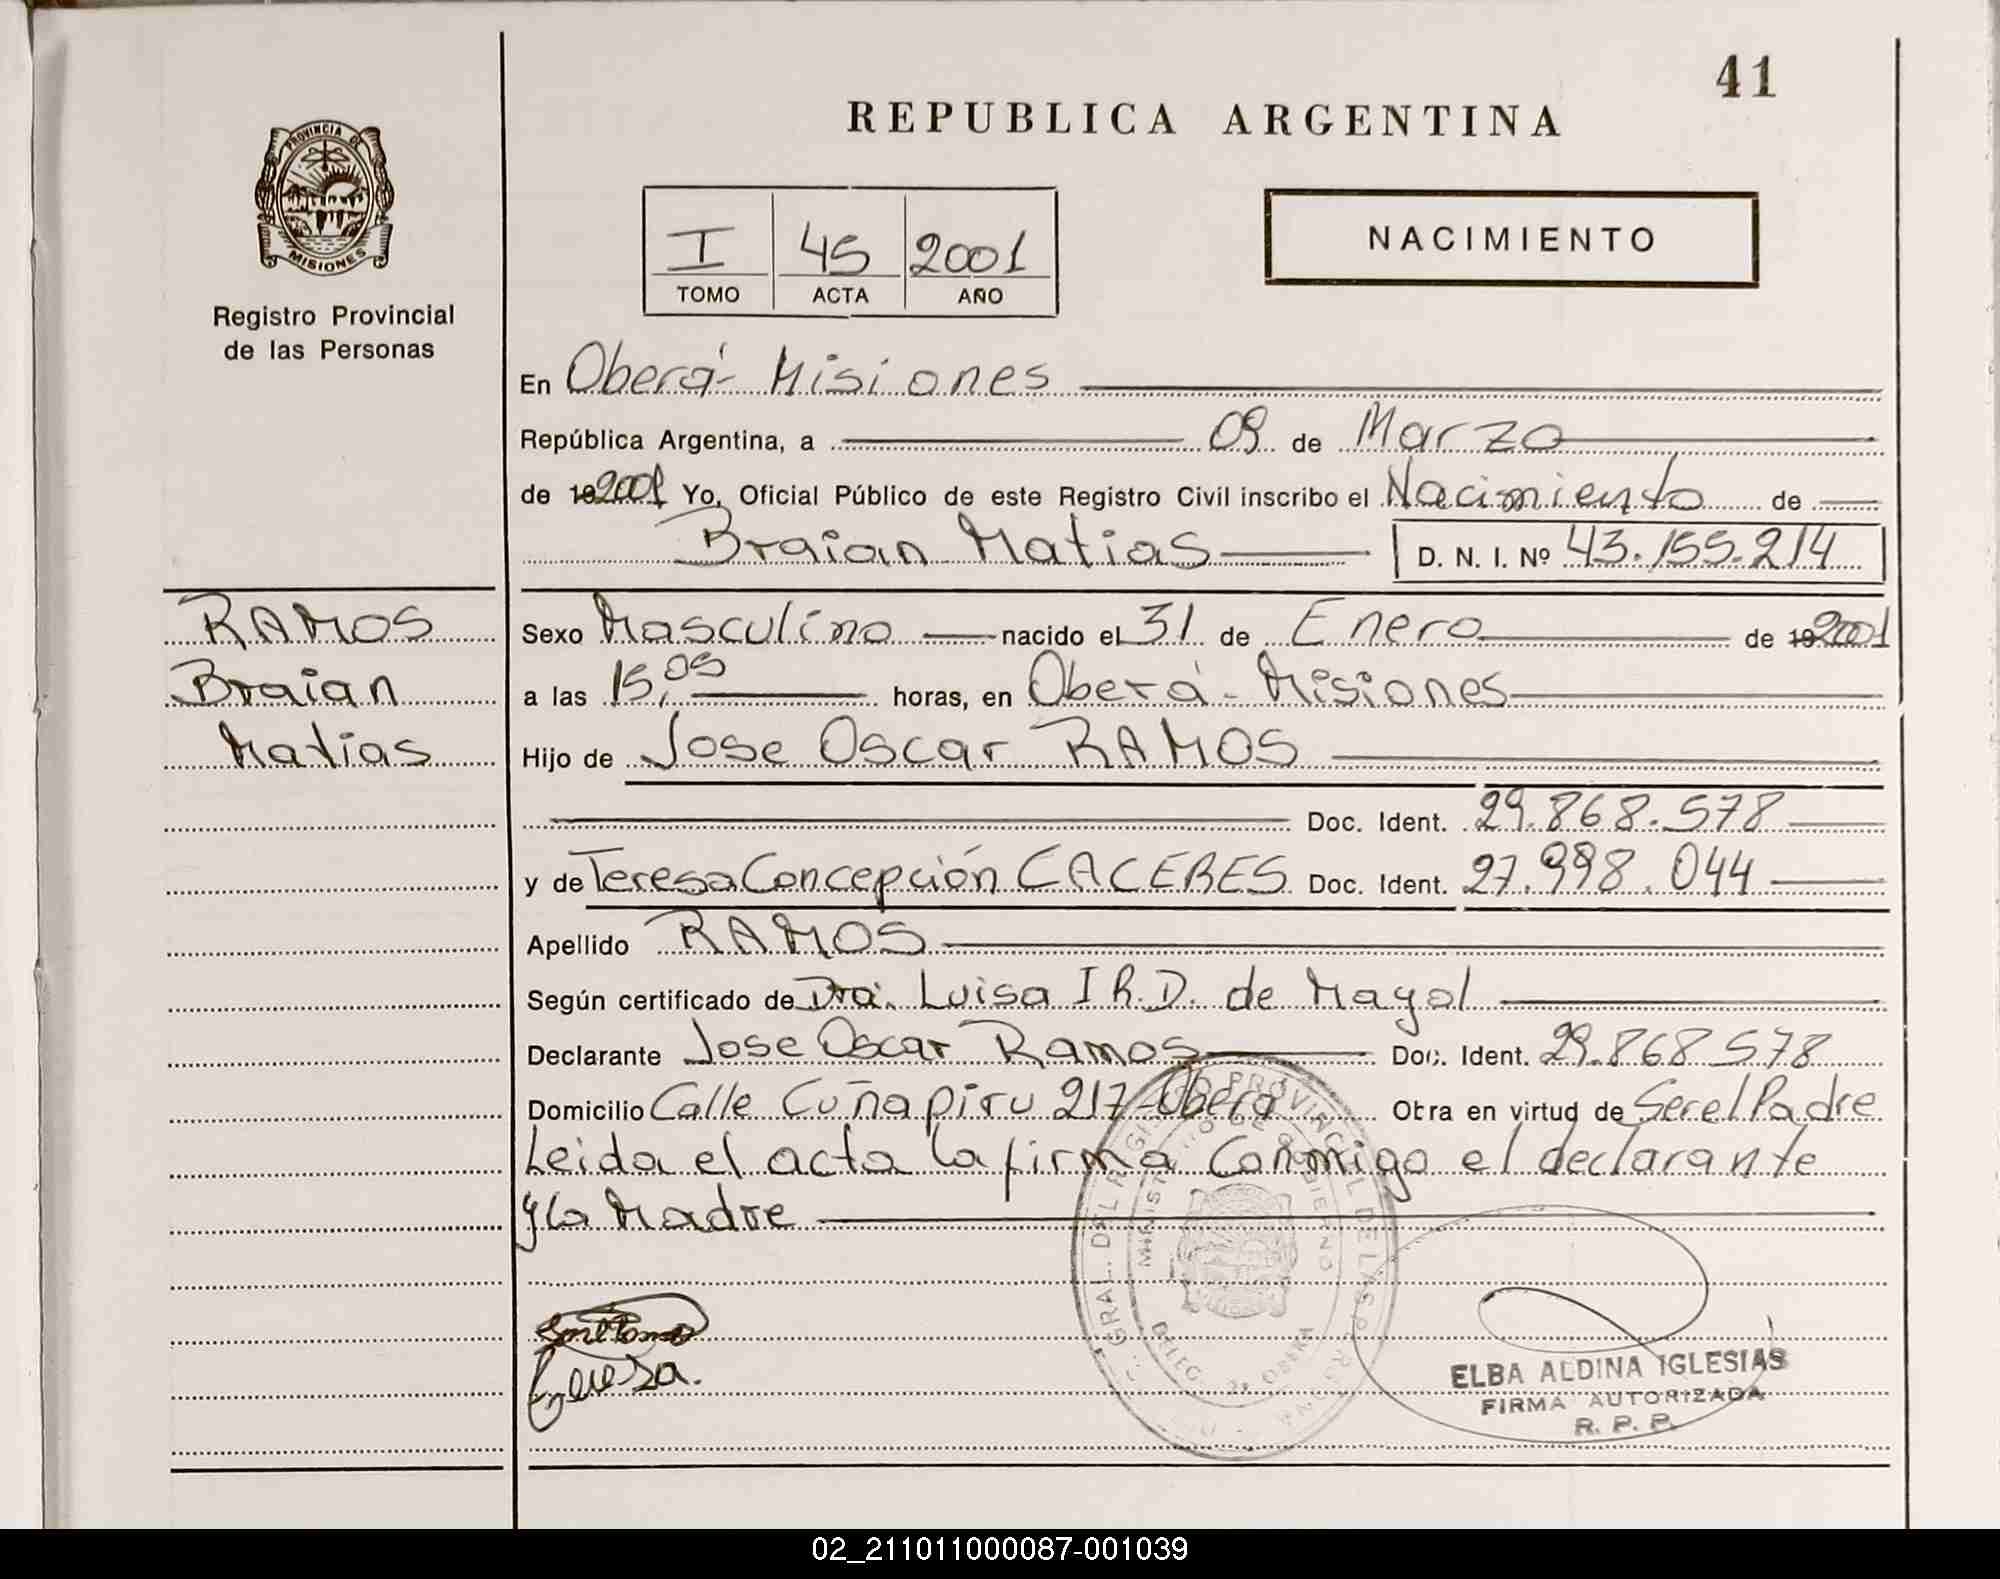 41
REPUBLICA ARGENTINA
PROVINCIA DE
MISIONES
Registro Provincial
de las Personas
I 45 2001
TOMO ACTA AÑO
NACIMIENTO
En Oberá - Misiones
República Argentina, a 09 de Marzo
de 192001 Yo, Oficial Público de este Registro Civil inscribo el Nacimiento de
Braian Matias D. N. I. Nº 43.155.214
RAMOS
Braian
Matias
Sexo Masculino nacido el 31 de Enero de 192001
a las 15,05 horas, en Oberá - Misiones
Hijo de Jose Oscar RAMOS
Doc. Ident. 29.868.578
y de Teresa Concepción CACERES Doc. Ident. 27.998.044
Apellido RAMOS
Según certificado de Dra. Luisa I R.D. de Mayol
Declarante Jose Oscar Ramos Doc. Ident. 29.868578
Domicilio Calle Cuñapiru 217-Oberá Obra en virtud de Ser el Padre
Leida el acta la firma Conmigo el declarante
y la Madre
Teresa.
ELBA ALDINA IGLESIAS
FIRMA AUTORIZADA
R. P. P.
02_211011000087-001039